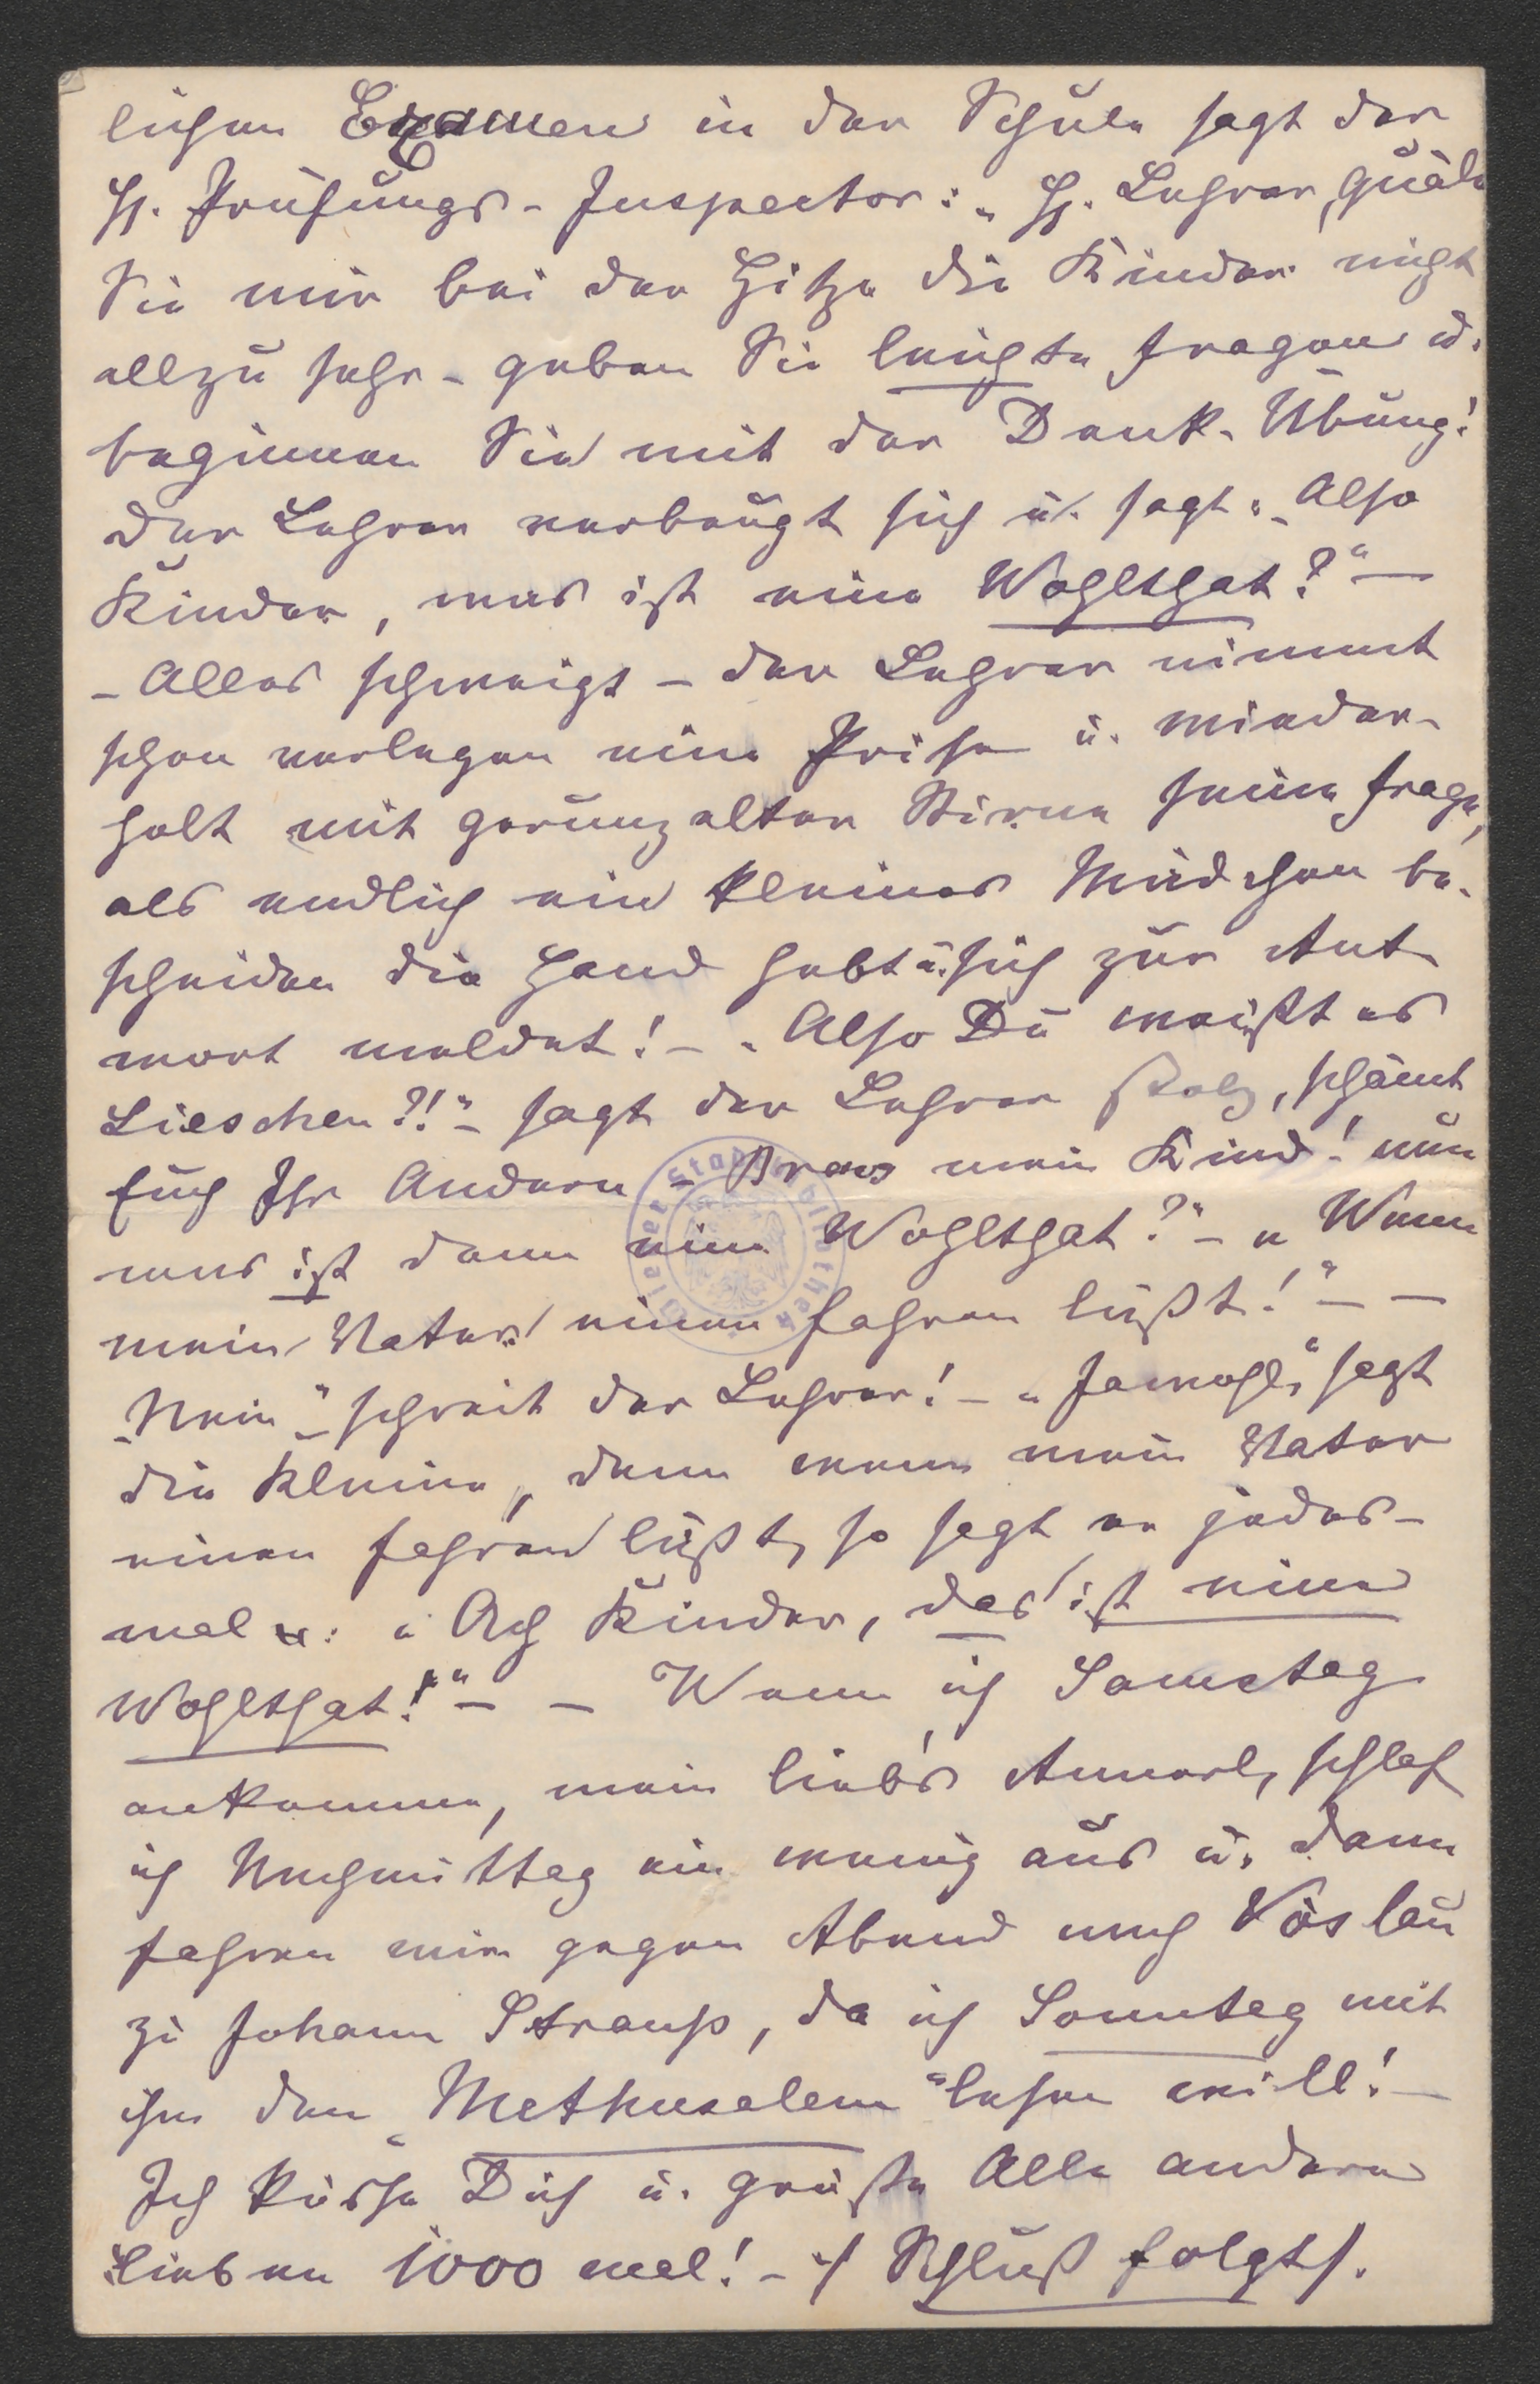 lichen Examen in der Schule sagt der
H. Prüfungs-Inspector: „H. Lehrer, quäle
Sie mir bei der Hitze die Kinder nicht
allzu sehr – geben Sie leichte Fragen u.
beginnen Sie mit der Denk-Übung!
Der Lehrer verbeugt sich u. sagt: „Also
Kinder, was ist eine Wohlthat?“ –
– Alles schweigt – der Lehrer nimmt
schon verlegen eine Prise u. wieder-
holt mit gerunzelter Stirne seine Frage,
als endlich ein kleines Mädchen be-
scheiden die Hand hebt u. sich zur Ant-
wort meldet! – „Also Du weißt es
Lieschen?!“ – sagt der Lehrer stolz, schämt
Euch Ihr Andern – Brav mein Kind! nun
was ist denn eine Wohlthat?“ – „Wenn
mein Vater einen fahren läßt!“ – –
„Nein“ – schreit der Lehrer! – „Jawohl“, sagt
die Kleine, „denn wenn mein Vater
einen fahren läßt, so sagt er jedes-
mal: „Ach Kinder, das ist eine
Wohlthat!“ – – Wenn ich Samstag
ankomme, mein lieb's Annerl, schlaf
ich Nachmittag ein wenig aus u. dann
fahren wir gegen Abend nach Vöslau
zu Johann Strauß, da ich Sonntag mit
ihm den „Methusalem“ lesen will! –
Ich küsse Dich u. grüße Alle andern
Lieben 1000 mal! – / Schluß folgt /.
Wiener Stadtbibliothek